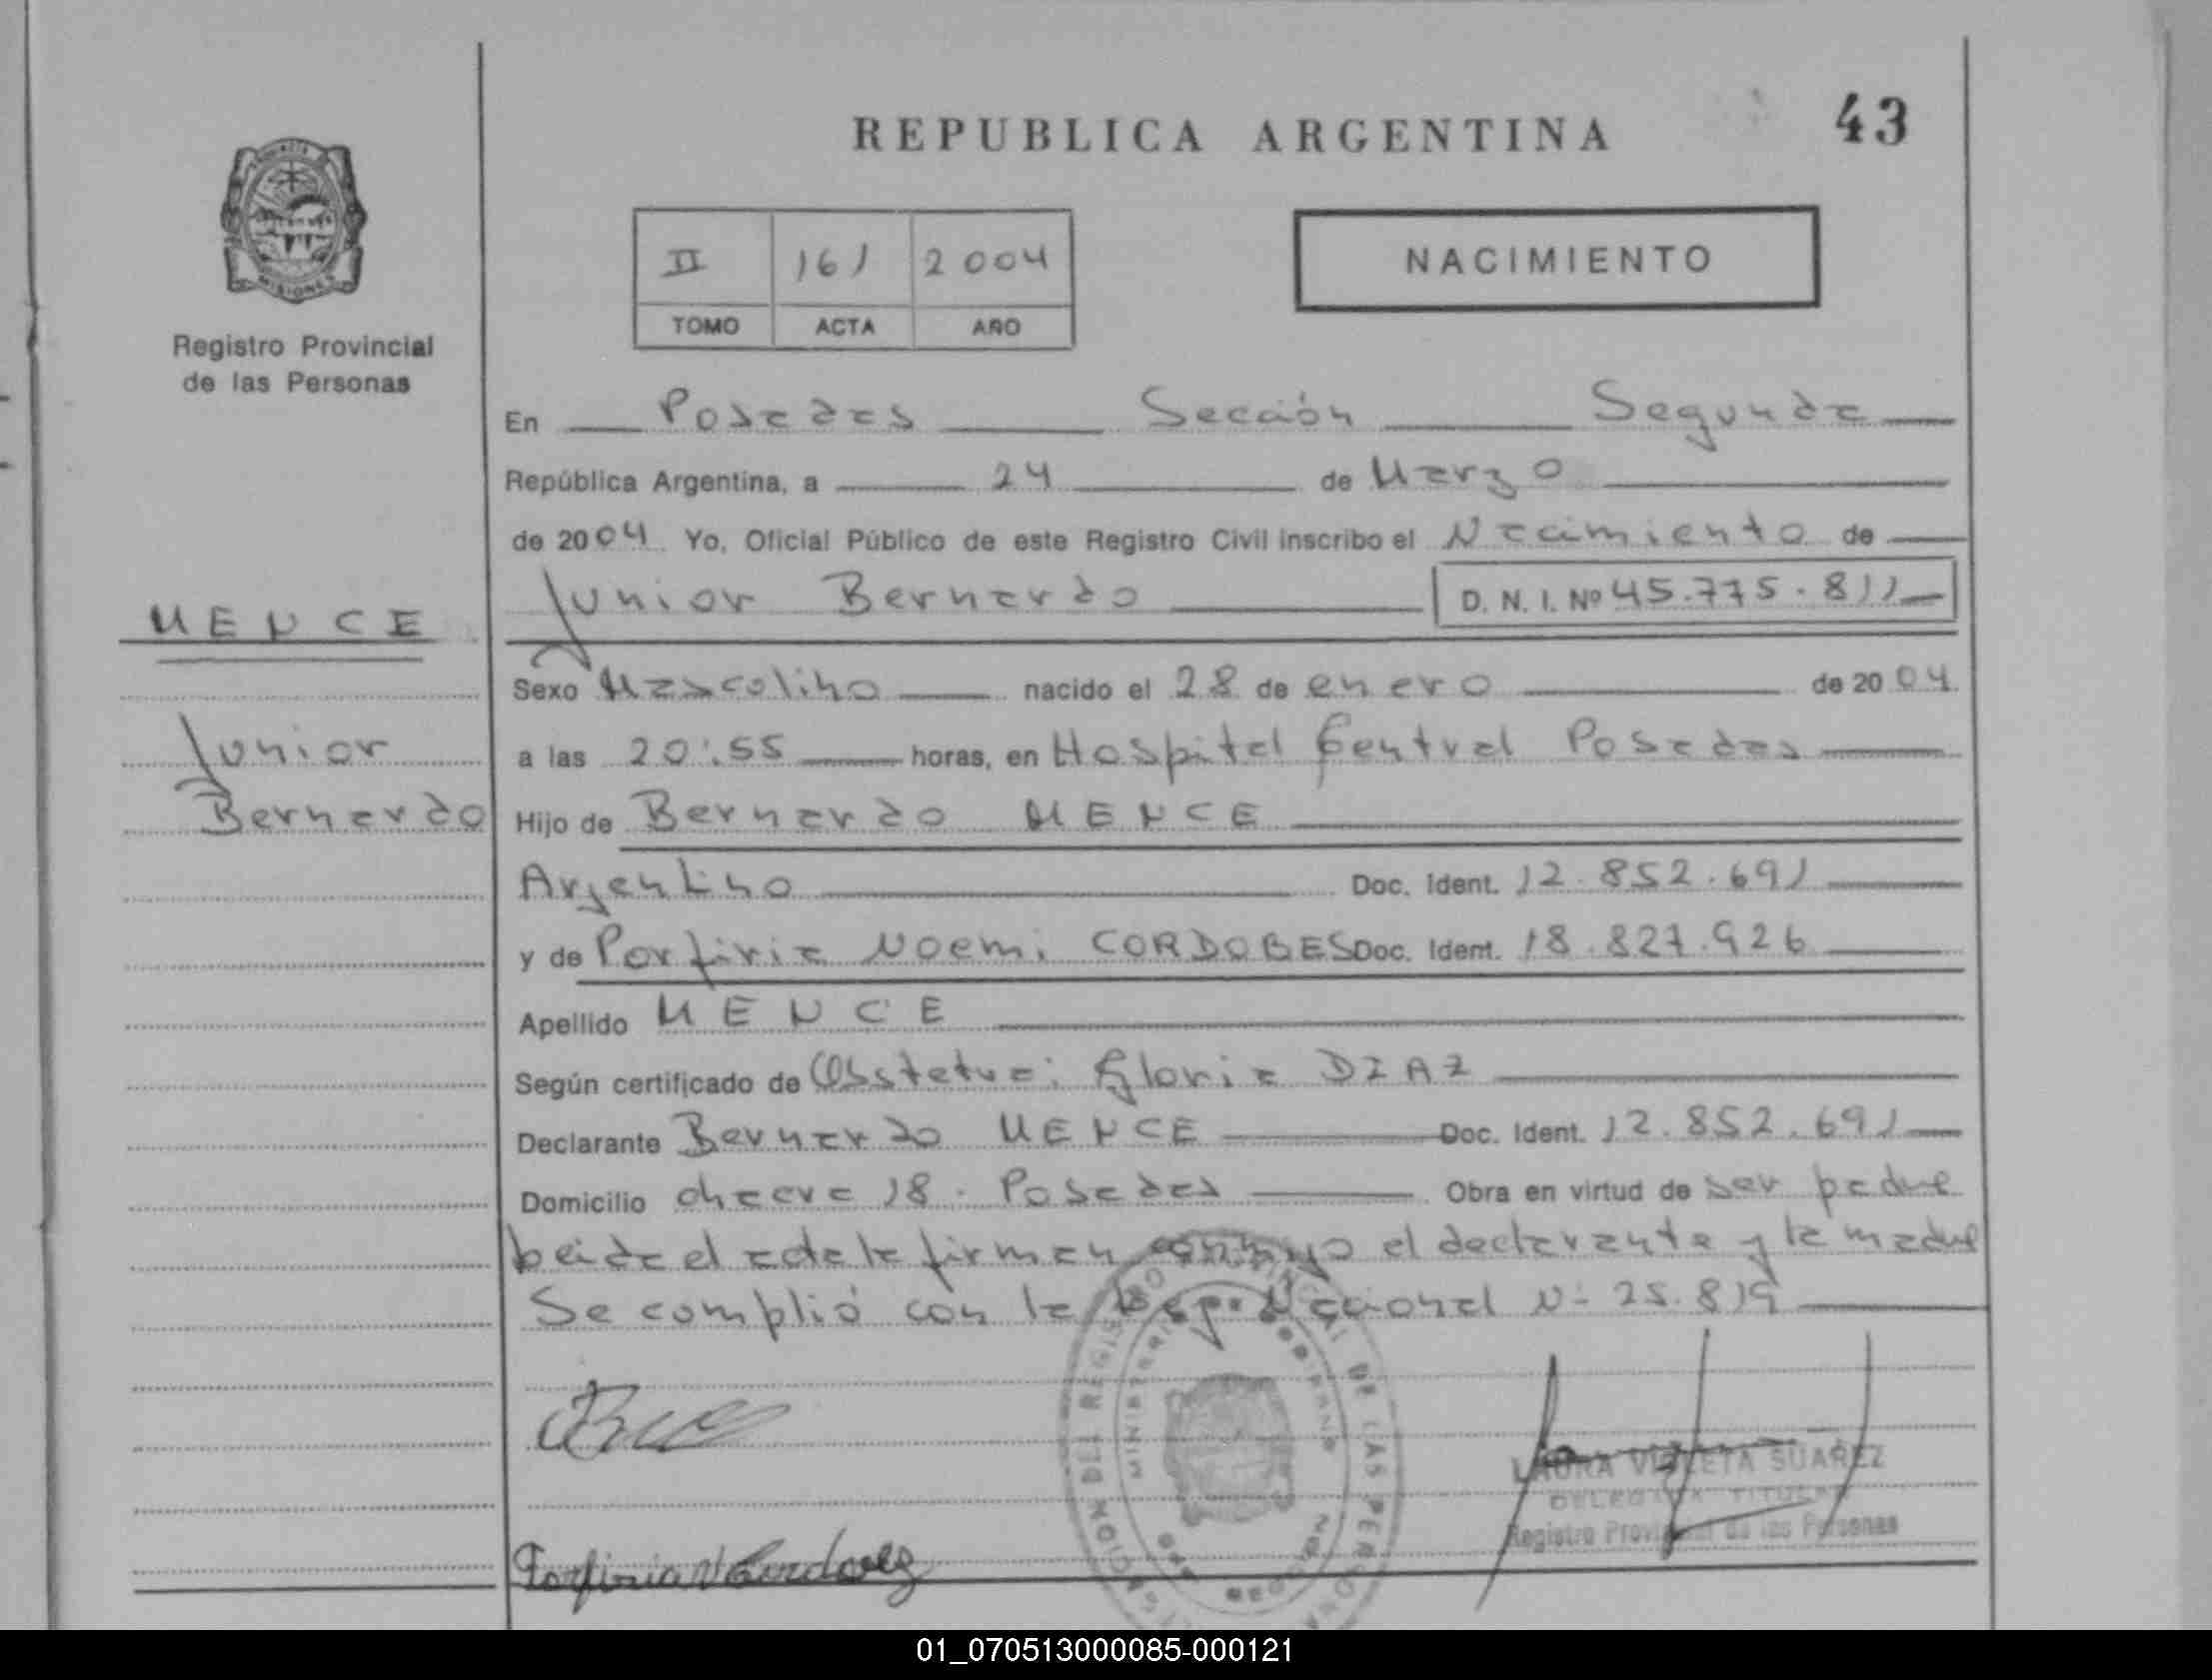 REPUBLICA ARGENTINA
43
PROVINCIA
MISIONES
Registro Provincial
de las Personas
II 161 2004
TOMO ACTA AÑO
NACIMIENTO
En Posadas Sección Segunda
República Argentina, a 24 de Marzo
de 2004 Yo, Oficial Público de este Registro Civil inscribo el Nacimiento de
Junior Bernardo D. N. I. Nº 45.775.811
MENCE
Sexo Mascolino nacido el 28 de enero de 2004
Junior
a las 20:55 horas, en Hospital Central Posadas
Bernardo
Hijo de Bernardo MENCE
Argentino Doc. Ident. 12.852.691
y de Porfiria Noemi CORDOBES Doc. Ident. 18.827.926
Apellido MENCE
Según certificado de Obstetra: Gloria DIAZ
Declarante Bernardo MENCE Doc. Ident. 12.852.691
Domicilio chacra 18. Posadas Obra en virtud de ser padre
Leida el acta la firman conmigo el declarante y la madre
Se complió con la Ley Nacional N- 25.819
LAURA VIOLETA SUAREZ
DELEGADA TITULAR
Registro Provincial de las Personas
Porfiria N
01_070513000085-000121